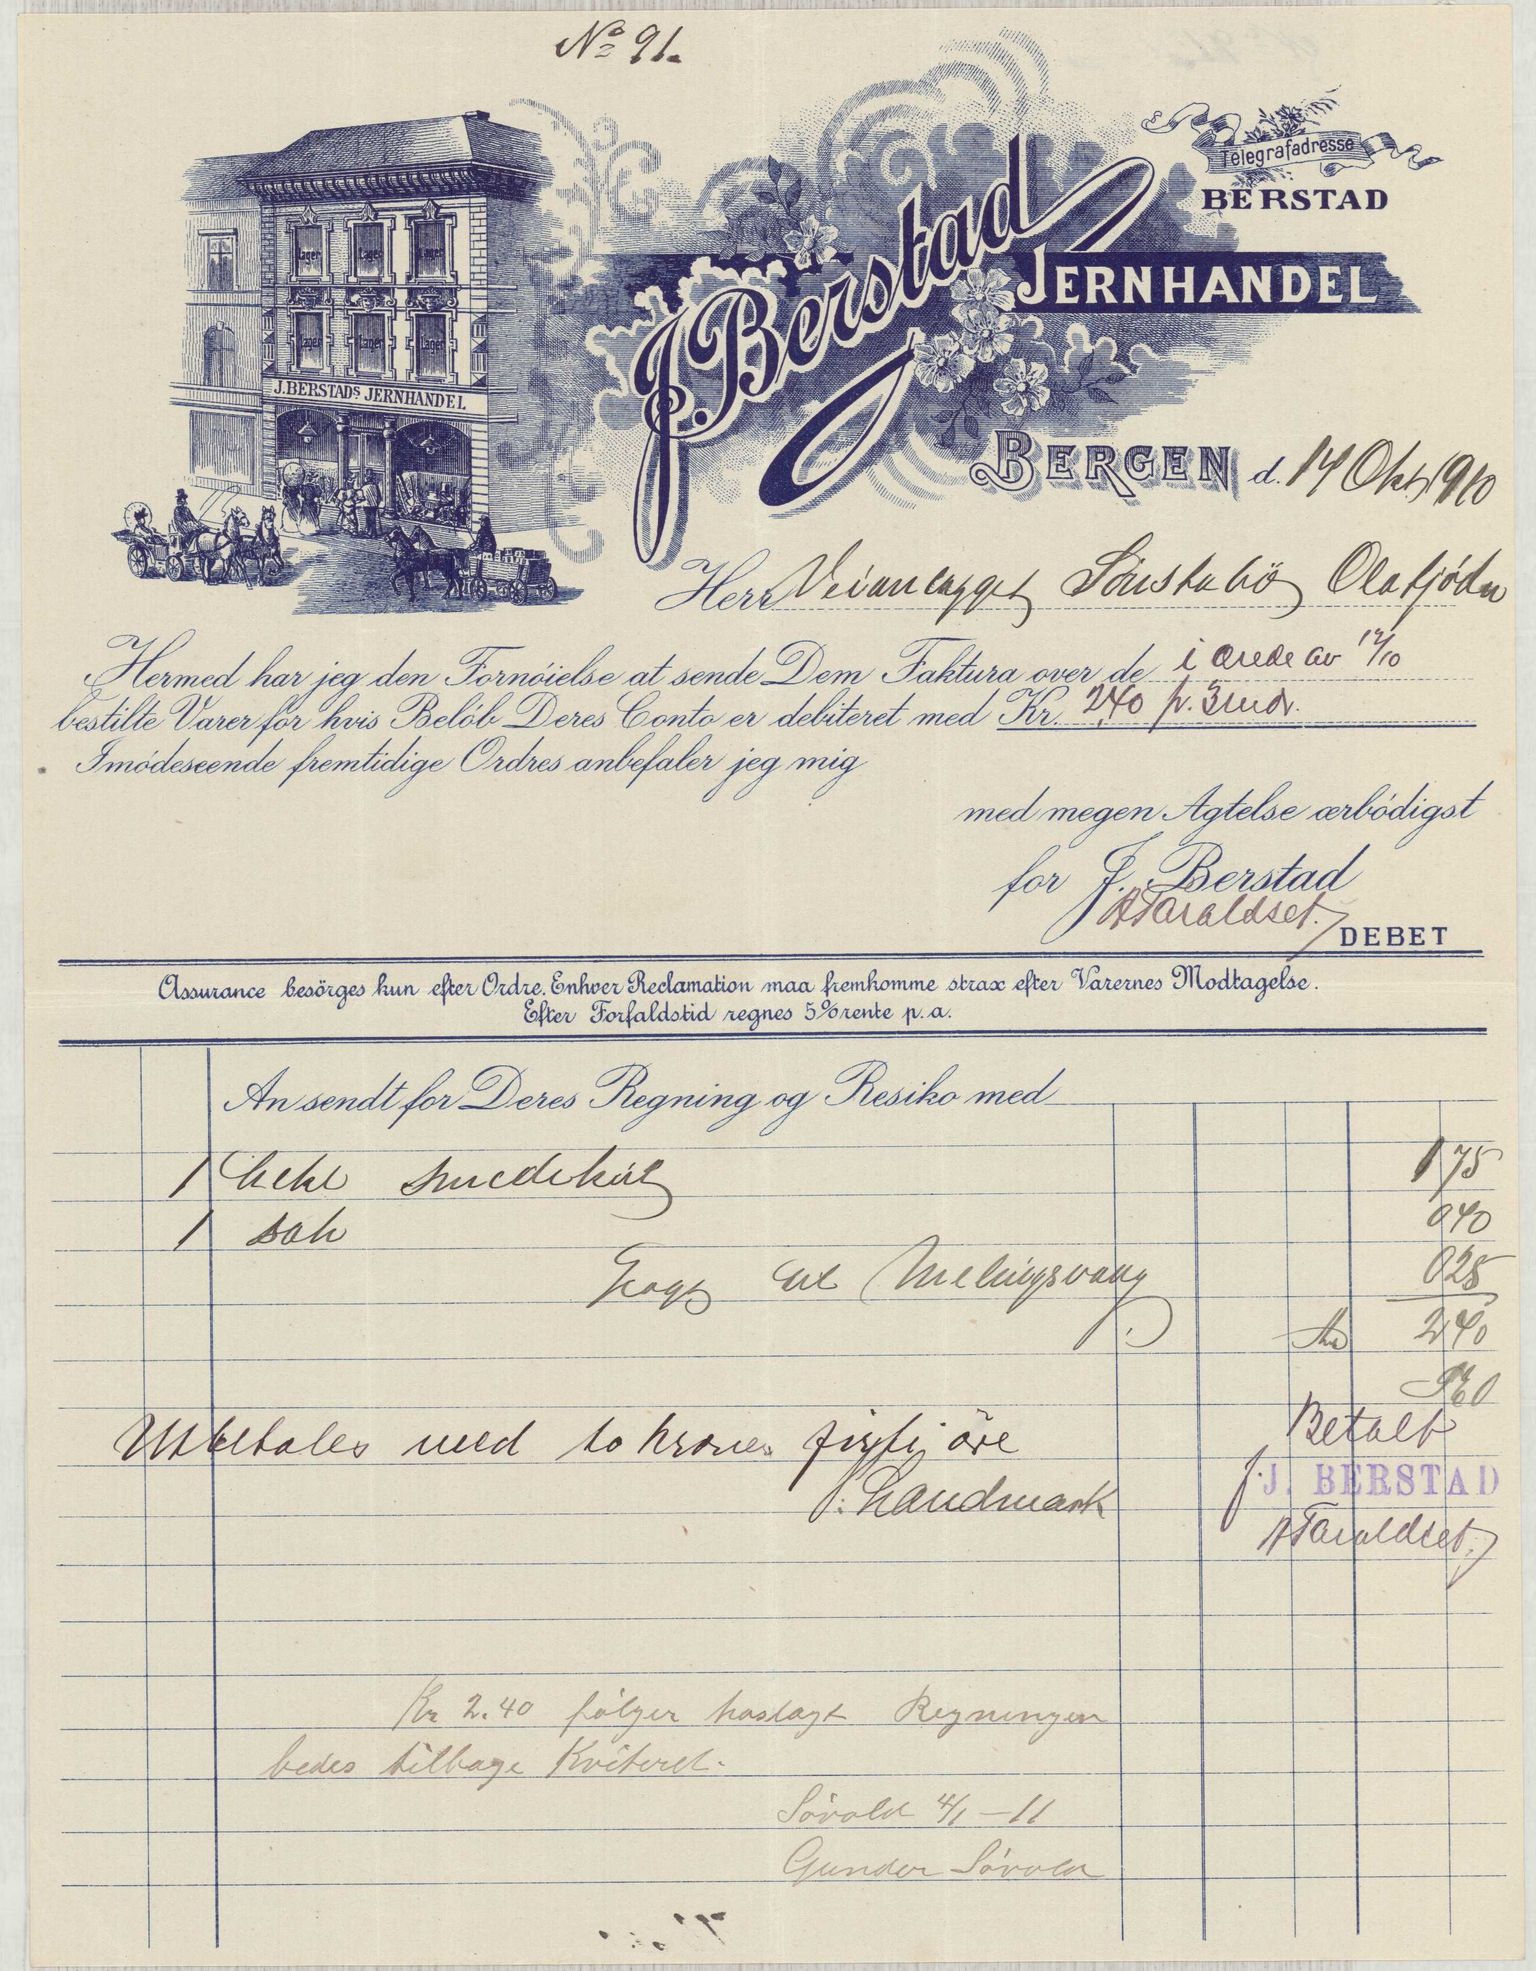 No 91.
Telegrafadresse
BERSTAD
J. Berstad
JERNHANDEL
Lager Lager Lager
Lager Lager Lager
J. BERSTADS JERNHANDEL
BERGEN d. 14 Okt 1910
Herr Veianlægget Sönstabö Olafjöden
Hermed har jeg den Fornöielse at sende Dem Faktura over de i ordre av 12/10
bestilte Varer for hvis Belöb Deres Conto er debiteret med Kr. 2,40 p. 3 mdr.
Imödeseende fremtidige Ordres anbefaler jeg mig
med megen Agtelse ærbödigst
for J. Berstad
Taraldset.
DEBET
Assurance besörges kun efter Ordre. Enhver Reclamation maa fremkomme strax efter Varernes Modtagelse.
Efter Forfaldstid regnes 5% rente p. a.
An sendt for Deres Regning og Resiko med
1 hekl smedekul 1 75
1 sæk 0 40
Fragt til Melingsvaag 0 25
Kr 2 40
Utbetales med to kroner firti öre
Betalt
J. Landmark
f. J. BERSTAD
Taraldset.
Kr 2.40 fölger hoslagt Regningen
bedes tilbage Kviteret.
Sörold 4/1 - 11
Gunder Sörold